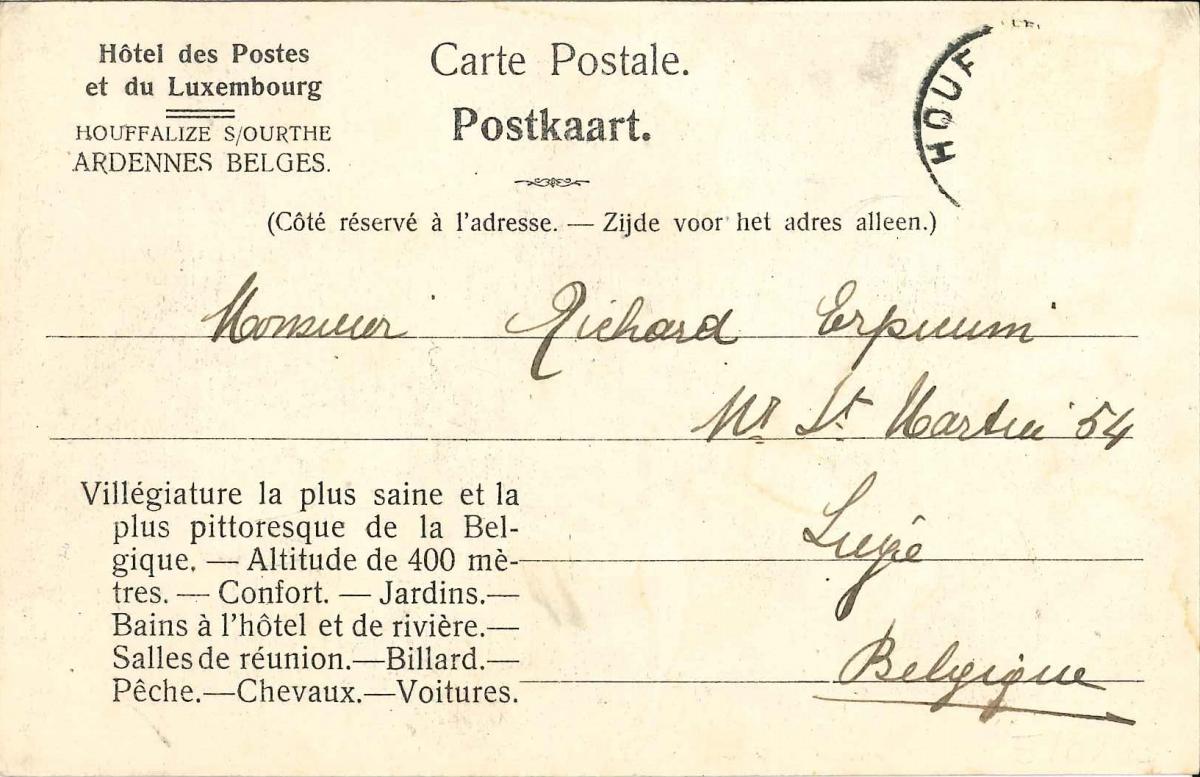 Hôtel des Postes
et du Luxembourg
HOUFFALIZE S/OURTHE
ARDENNES BELGES.
Carte Postale.
Postkaart.
HOUF
(Côté réservé à l'adresse. — Zijde voor het adres alleen.)
Monsieur Richard
St Martin 54
Liège
Belgique
Villégiature la plus saine et la
plus pittoresque de la Bel-
gique. — Altitude de 400 mè-
tres. — Confort. — Jardins.—
Bains à l'hôtel et de rivière.—
Salles de réunion.—Billard.—
Pêche.—Chevaux.—Voitures.